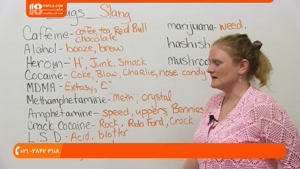 Drugs Slang
Caffeine - coffee, tea, Red Bull
chocolate
Alcohol - booze, brew
Heroin - "H", Junk, Smack
Cocaine - Coke, Blow, Charlie, nose candy
MDMA - Extasy, "E"
Methamphetamine - meth, crystal
Amphetamine - speed, uppers, Bennies
Crack Cocaine - Rock, Rob Ford, Crack
L.S.D - Acid, blotter
marijuana - weed,
hashish
mushroo